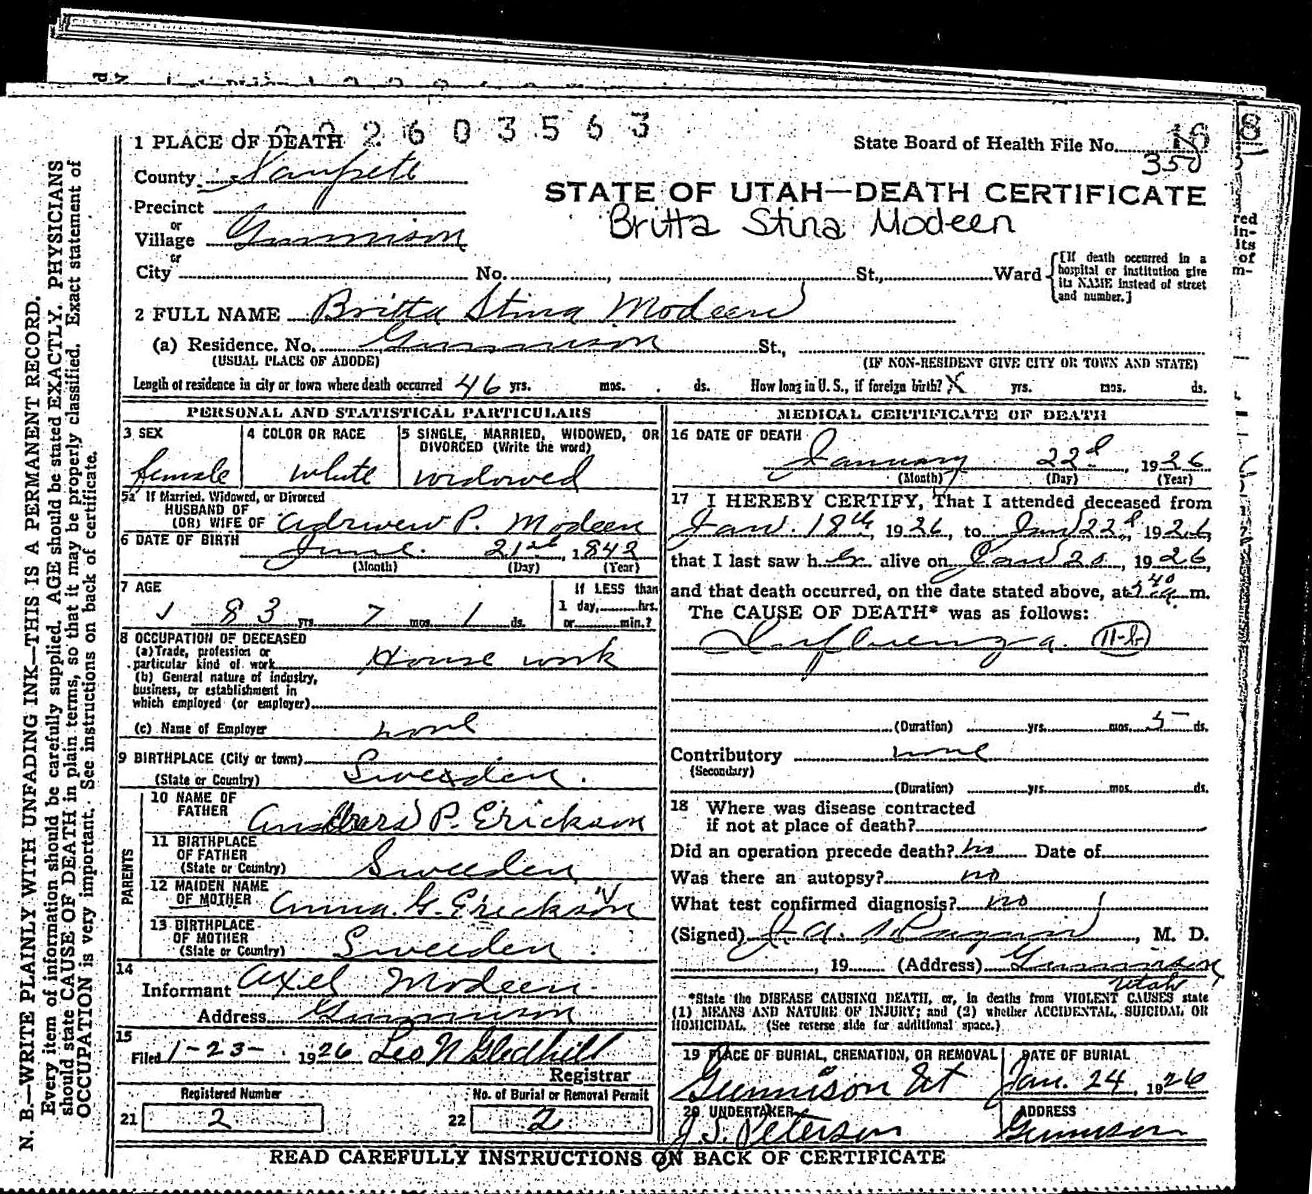 2603563
1 PLACE OF DEATH
State Board of Health File No. 16
350
County Sanpete
STATE OF UTAH—DEATH CERTIFICATE
Britta Stina Modeen
Precinct
or
Village Gunnison
or
City No. , St., Ward
[If death occurred in a hospital or institution give its NAME instead of street and number.]
2 FULL NAME Britta Stina Modeen
(a) Residence. No. Gunnison St.,
(USUAL PLACE OF ABODE) (IF NON-RESIDENT GIVE CITY OR TOWN AND STATE)
Length of residence in city or town where death occurred 46 yrs. mos. ds. How long in U. S., if foreign birth? X yrs. mos. ds.
PERSONAL AND STATISTICAL PARTICULARS
3 SEX
female
4 COLOR OR RACE
white
5 SINGLE, MARRIED, WIDOWED, OR DIVORCED (Write the word)
widowed
5a If Married, Widowed, or Divorced
HUSBAND OF
(OR) WIFE OF Adrwew P. Modeen
6 DATE OF BIRTH June 21st, 1842
(Month) (Day) (Year)
7 AGE
83 yrs. 7 mos. 1 ds.
If LESS than
1 day, hrs.
or min.?
8 OCCUPATION OF DECEASED
(a) Trade, profession or
particular kind of work House work
(b) General nature of industry,
business, or establishment in
which employed (or employer)
(c) Name of Employer none
9 BIRTHPLACE (City or town)
(State or Country) Sweden.
PARENTS
10 NAME OF
FATHER P. Erickson
11 BIRTHPLACE
OF FATHER
(State or Country) Sweeden
12 MAIDEN NAME
OF MOTHER Anna G. Erickson
13 BIRTHPLACE
OF MOTHER
(State or Country) Sweeden.
14
Informant Axel Modeen.
Address Gunnison
15
Filed 1-23- 1926 Leo N Gledhill
Registrar
Registered Number
21 2
No. of Burial or Removal Permit
22 2
MEDICAL CERTIFICATE OF DEATH
16 DATE OF DEATH
January 22d, 1926
(Month) (Day) (Year)
17 I HEREBY CERTIFY, That I attended deceased from
Jan. 18th, 1926, to Jan 22d, 1926,
that I last saw her alive on Jan 20, 1926,
and that death occurred, on the date stated above, at m.
The CAUSE OF DEATH* was as follows:
Influenza. 11-b
(Duration) yrs. mos. 5 ds.
Contributory none
(Secondary)
(Duration) yrs. mos. ds.
18 Where was disease contracted
if not at place of death?
Did an operation precede death? no Date of
Was there an autopsy? no
What test confirmed diagnosis? no
(Signed) J. A. , M. D.
, 19 (Address) Gunnison,
Utah
*State the DISEASE CAUSING DEATH, or, in deaths from VIOLENT CAUSES state
(1) MEANS AND NATURE OF INJURY; and (2) whether ACCIDENTAL, SUICIDAL OR
HOMICIDAL. (See reverse side for additional space.)
19 PLACE OF BURIAL, CREMATION, OR REMOVAL
Gunnison Ut
DATE OF BURIAL
Jan. 24, 1926
20 UNDERTAKER
J S. Peterson
ADDRESS
Gunnison
READ CAREFULLY INSTRUCTIONS ON BACK OF CERTIFICATE
N. B.—WRITE PLAINLY WITH UNFADING INK—THIS IS A PERMANENT RECORD.
Every item of information should be carefully supplied. AGE should be stated EXACTLY. PHYSICIANS
should state CAUSE OF DEATH in plain terms, so that it may be properly classified. Exact statement of
OCCUPATION is very important. See instructions on back of certificate.